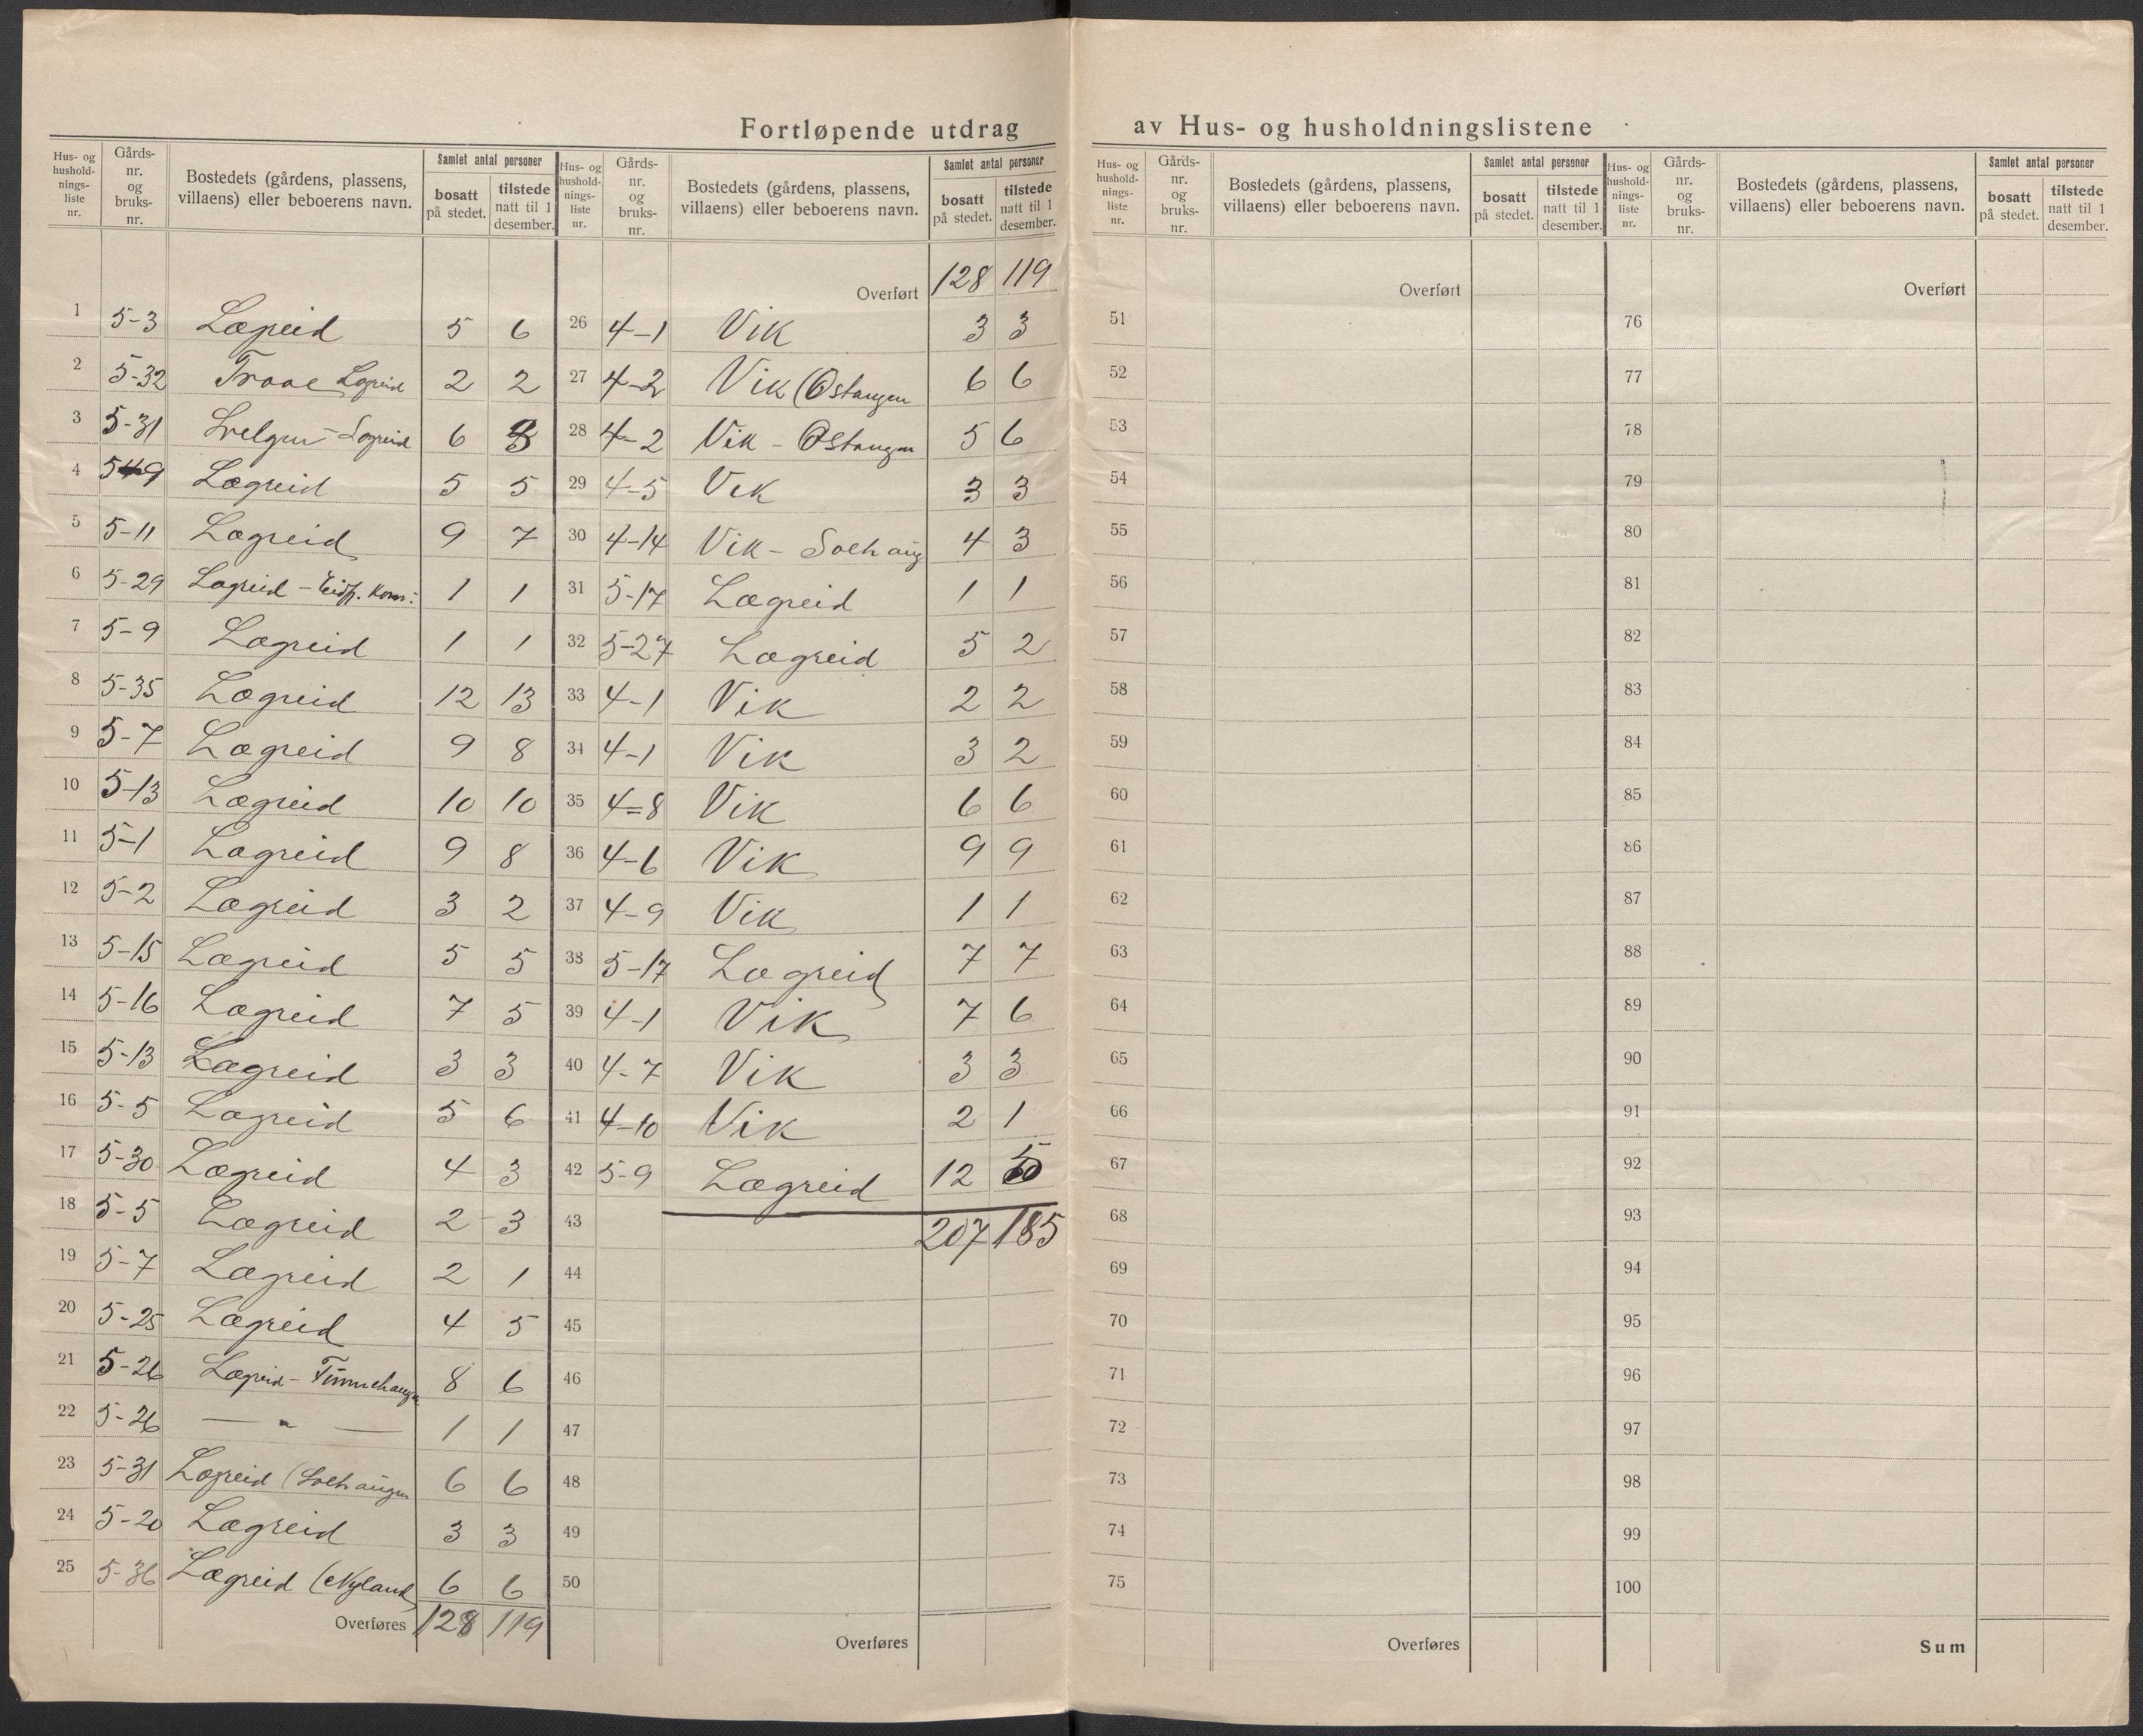 Fortløpende utdrag av Hus- og husholdningslistene
Hus- og hushold- nings- liste nr. | Gårds- nr. og bruks- nr. | Bostedets (gårdens, plassens, villaens) eller beboerens navn. | Samlet antal personer | bosatt på stedet. | tilstede natt til 1 desember.
1 5-3 Lægreid 5 6
2 5-32 Traae Lægreid 2 2
3 5-31 Lægreid 6
4 Lægreid 5 5
5 5-11 Lægreid 9 7
6 5-29 Lægreid - Eidfj. Kom: 1 1
7 5-9 Lægreid 1 1
8 5-35 Lægreid 12 13
9 5-7 Lægreid 9 8
10 5-13 Lægreid 10 10
11 5-1 Lægreid 9 8
12 5-2 Lægreid 3 2
13 5-15 Lægreid 5 5
14 5-16 Lægreid 7 5
15 5-13 Lægreid 3 3
16 5-5 Lægreid 5 6
17 5-30 Lægreid 4 3
18 5-5 Lægreid 2 3
19 5-7 Lægreid 2 1
20 5-25 Lægreid 4 5
21 5-26 Lægreid - 8 6
22 5-26 — " — 1 1
23 5-31 Lægreid (Solhaugen 6 6
24 5-20 Lægreid 3 3
25 5-36 Lægreid (Nyland) 6 6
Overføres 128 119
Hus- og hushold- nings- liste nr. | Gårds- nr. og bruks- nr. | Bostedets (gårdens, plassens, villaens) eller beboerens navn. | Samlet antal personer | bosatt på stedet. | tilstede natt til 1 desember.
Overført 128 119
26 4-1 Vik 3 3
27 4-2 Vik (Ostangen 6 6
28 4-2 Vik - Ostangen 5 6
29 4-5 Vik 3 3
30 4-14 Vik - Solhaug 4 3
31 5-17 Lægreid 1 1
32 5-27 Lægreid 5 2
33 4-1 Vik 2 2
34 4-1 Vik 3 2
35 4=8 Vik 6 6
36 4-6 Vik 9 9
37 4-9 Vik 1 1
38 5-17 Lægreid 7 7
39 4-1 Vik 7 6
40 4-7 Vik 3 3
41 4-10 Vik 2 1
42 5-9 Lægreid 12 5
43 207 185
44
45
46
47
48
49
50
Overføres
Hus- og hushold- nings- liste nr. | Gårds- nr. og bruks- nr. | Bostedets (gårdens, plassens, villaens) eller beboerens navn. | Samlet antal personer | bosatt på stedet. | tilstede natt til 1 desember.
Overført
51
52
53
54
55
56
57
58
59
60
61
62
63
64
65
66
67
68
69
70
71
72
73
74
75
Overføres
Hus- og hushold- nings- liste nr. | Gårds- nr. og bruks- nr. | Bostedets (gårdens, plassens, villaens) eller beboerens navn. | Samlet antal personer | bosatt på stedet. | tilstede natt til 1 desember.
Overført
76
77
78
79
80
81
82
83
84
85
86
87
88
89
90
91
92
93
94
95
96
97
98
99
100
Sum